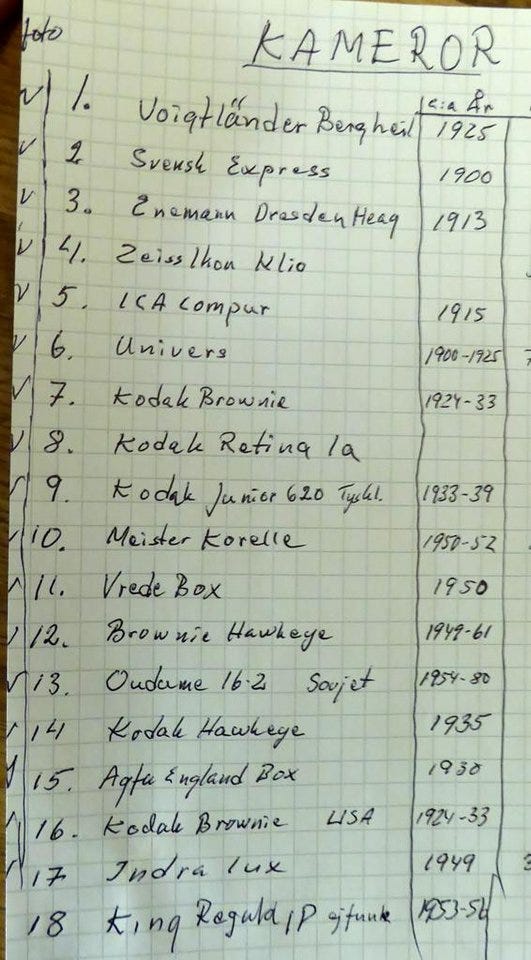 foto KAMEROR
c:a År
v 1. Voigtländer Bergheil 1925
v 2 Svensk Express 1900
v 3. Enemann Dresden Heag 1913
v 4. Zeiss Ikon Klio
v 5. ICA Compur 1915
v 6. Univers 1900-1925
v 7. Kodak Brownie 1924-33
v 8. Kodak Retina 1a
v 9. Kodak Junior 620 Tyskl. 1933-39
v 10. Meister Korelle 1950-52
v 11. Vrede Box 1950
v 12. Brownie Hawkeye 1949-61
v 13. Oudame 16-2 Sovjet 1954-80
v 14 Kodak Hawkeye 1935
v 15. Agfa England Box 1930
v 16. Kodak Brownie USA 1924-33
v 17 Indra lux 1949
18 King Regula IP ej funk 1953-56